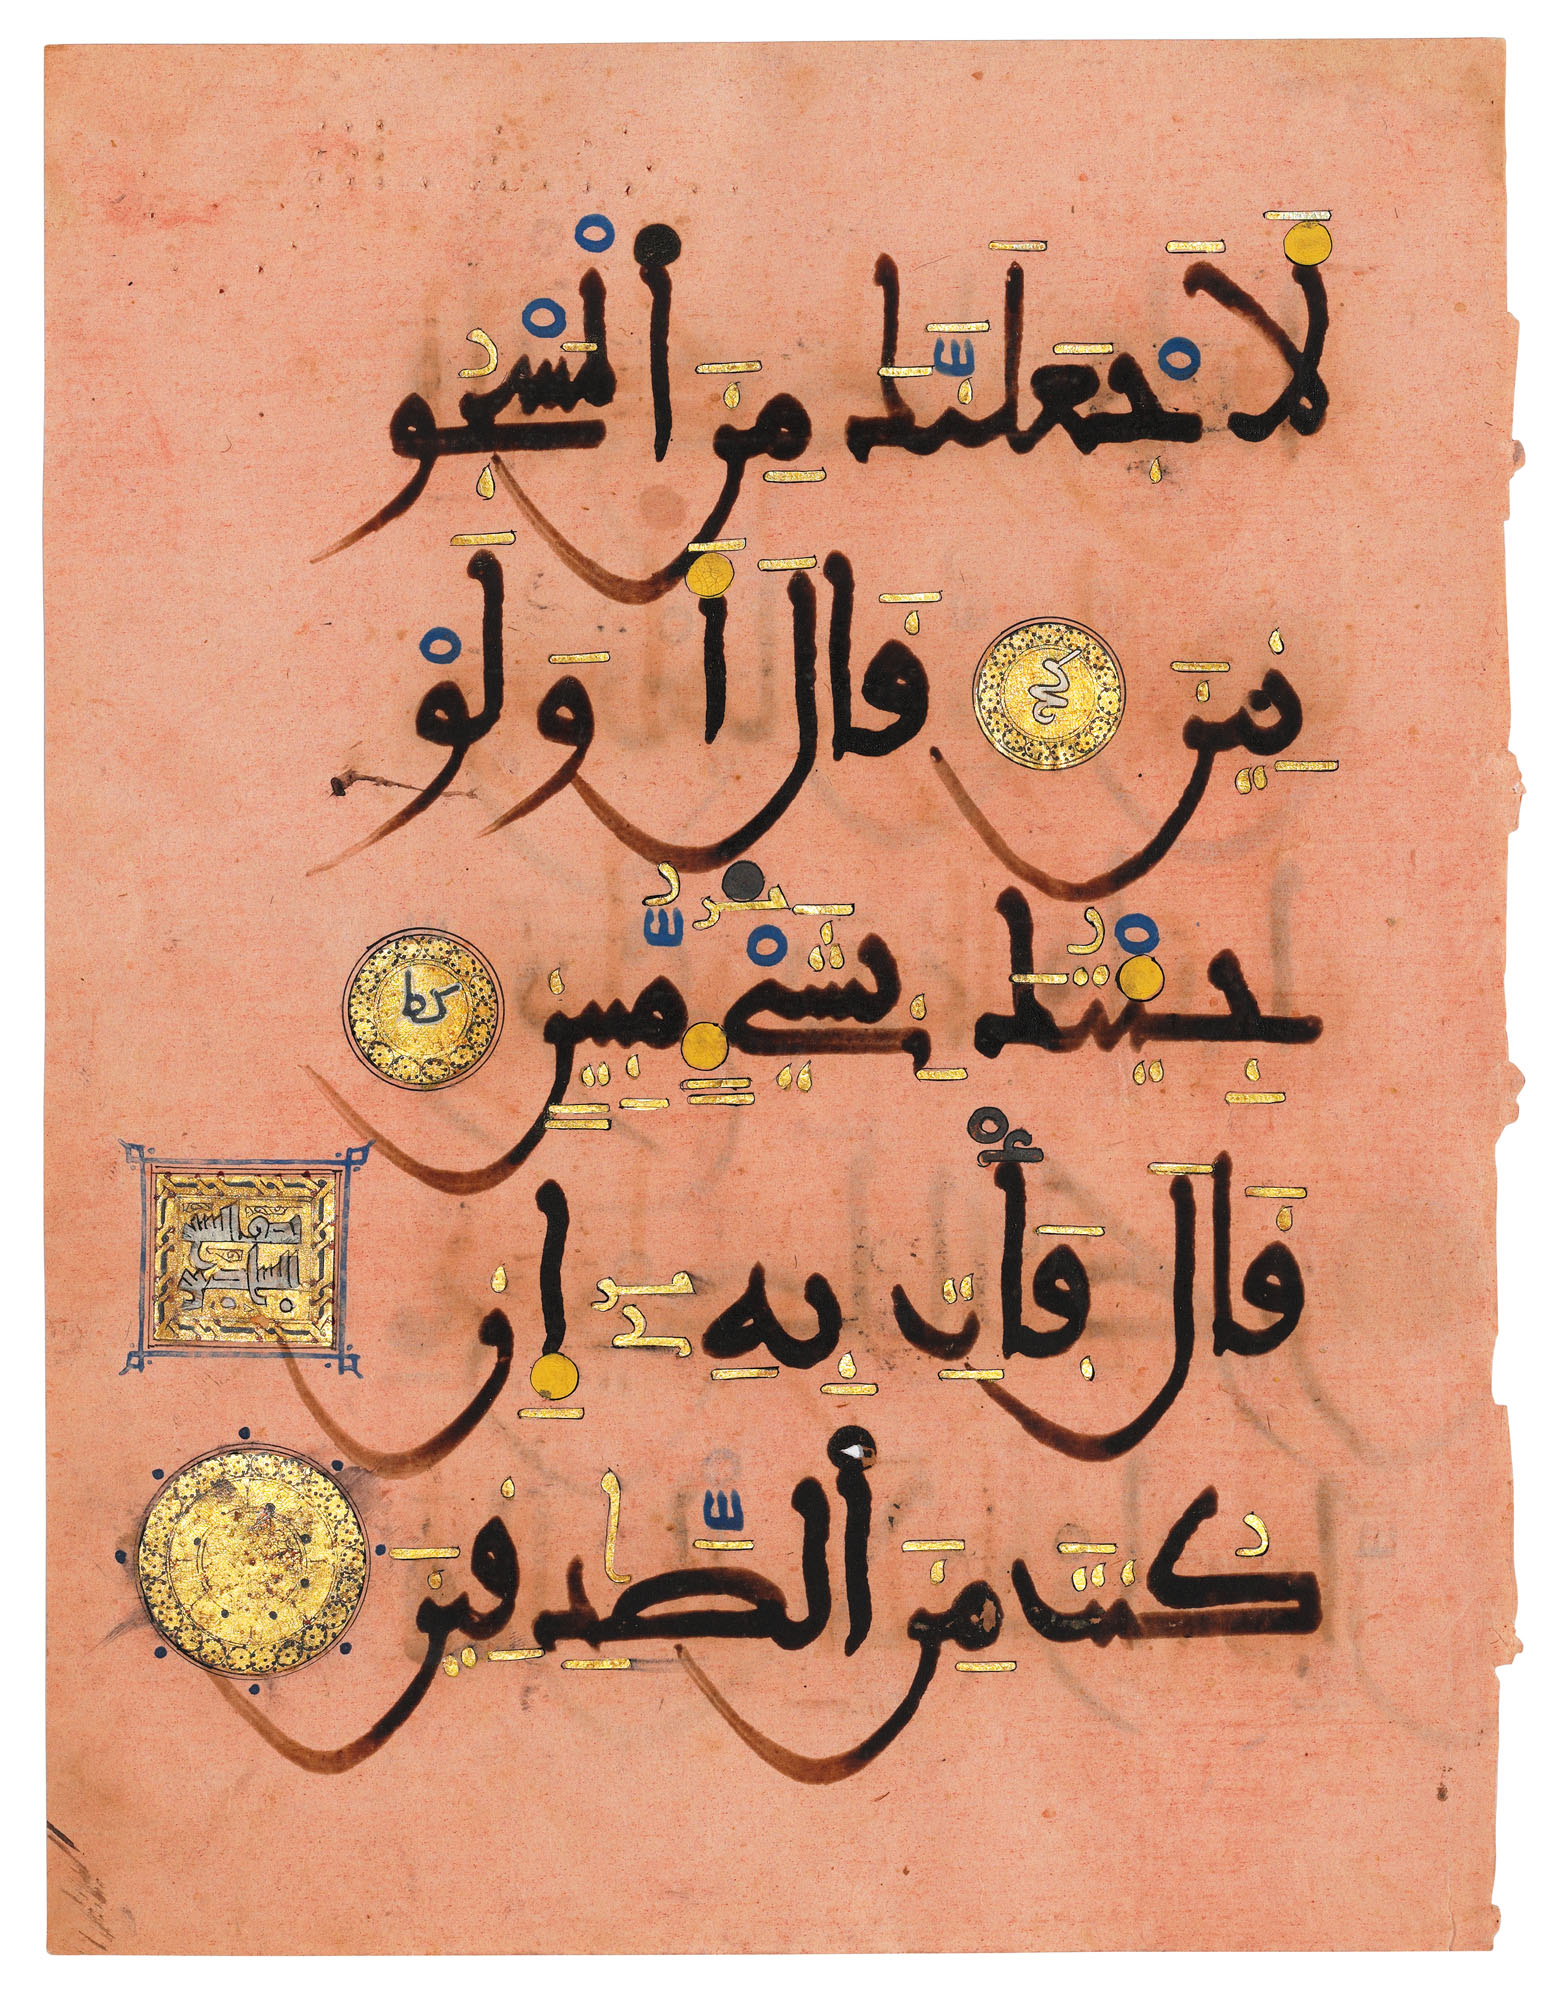 لَأَجْعَلَنَّكَ مِنَ ٱلْمَسْجُو
نِينَ كح قَالَ أَوَلَوْ
جِئْتُكَ بِشَيْءٍ مُّبِينٍ كط
قَالَ فَأْتِ بِهِۦ إِن
كُنتَ مِنَ ٱلصَّـٰدِقِينَ